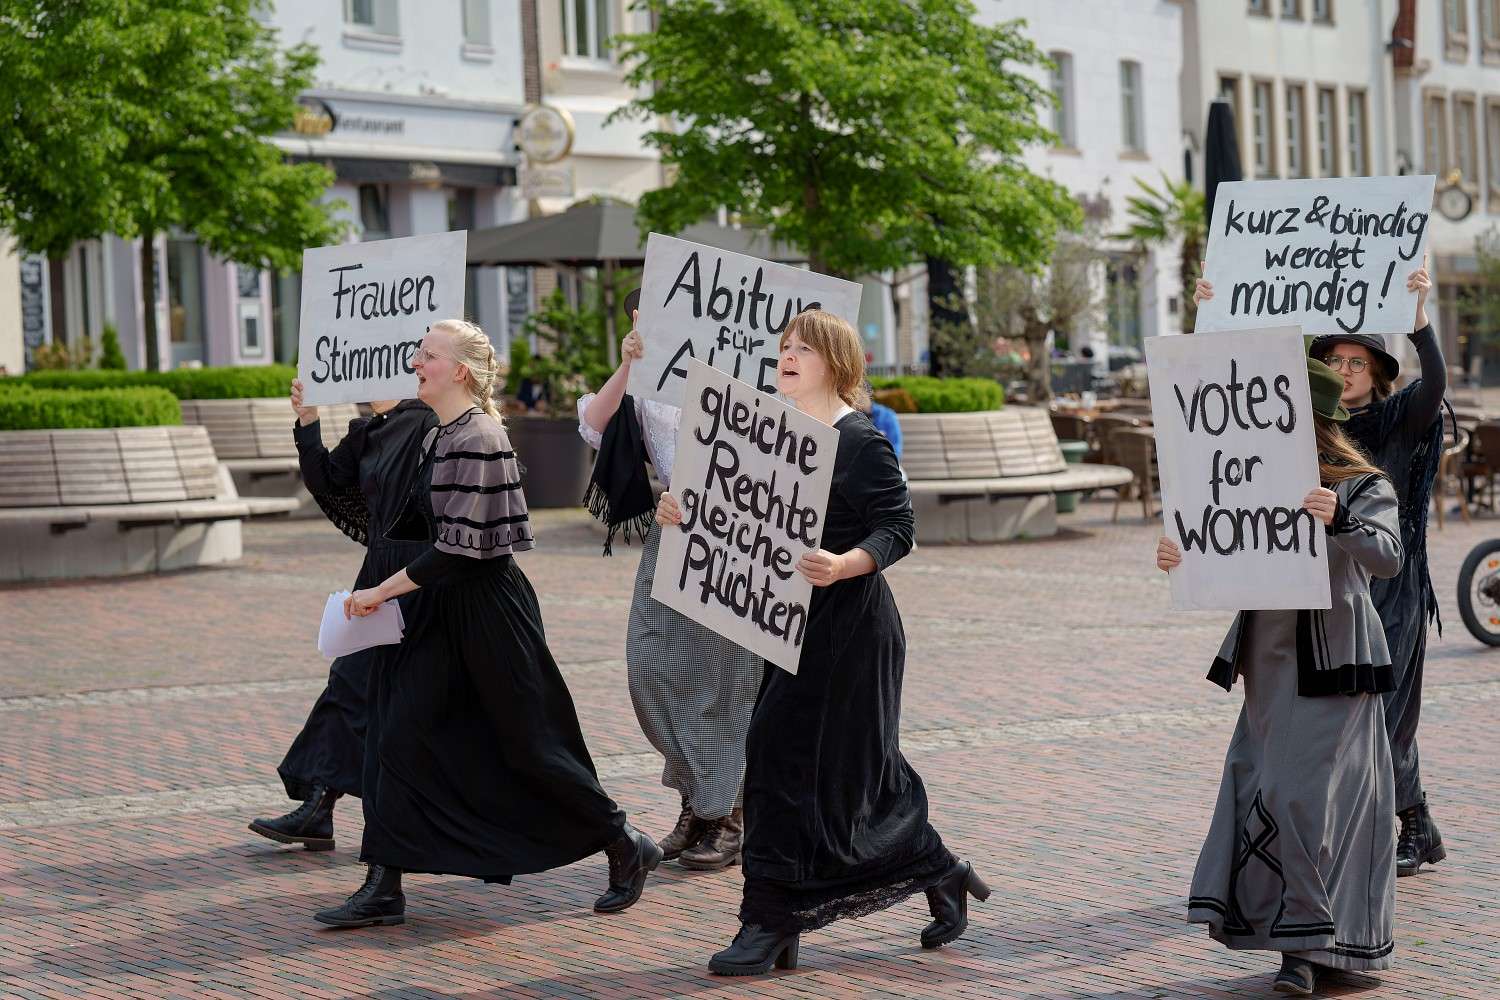 Restaurant
Frauen
Abitur
für
kurz & bündig
werdet
mündig!
gleiche
Rechte
gleiche
Pflichten
votes
for
women